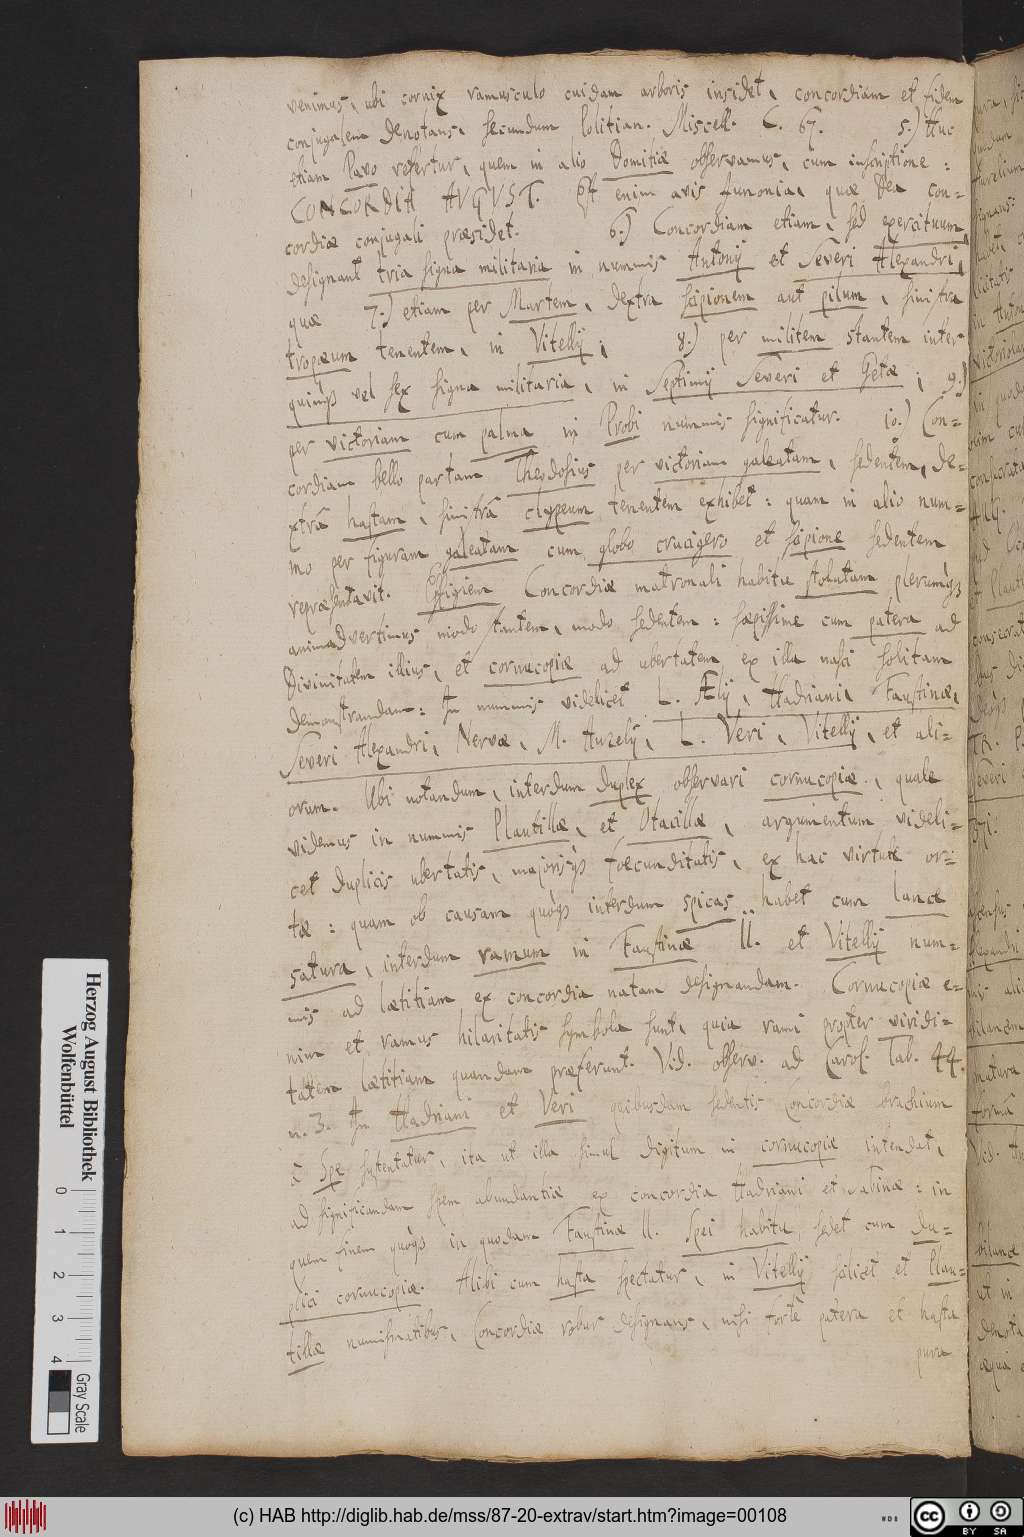 venimus, ubi cornix ramusculo cuidam arboris insidet, concordiam et fidem
conjugalem denotans, secundum Politian. Miscell. C. 67. 5.) Huc
etiam Pavo refertur, quem in alio Domitiæ observamus, cum inscriptione:
CONCORDIA AVGVST. Est enim avis Junonia, quæ Dea con=
cordiæ conjugali præsidet. 6.) Concordiam etiam, sed exercituum,
designant tria signa militaria in nummis Antonij et Severi Alexandri,
quæ 7.) etiam per Martem, dextra scipionem aut pilum, sinistra
tropæum tenentem, in Vitellij; 8.) per militem stantem inter
quinqs vel sex signa militaria, in Septimij Severi et Getæ; 9.)
per victoriam cum palma in Probi nummis significatur. 10.) Con=
cordiam bello partam Theodosius per victoriam galeatam, sedentem, de=
xtrâ hastam, sinistrâ clypeum tenentem exhibet: quam in alio num=
mo per figuram galeatam cum globo crucigero et scipione sedentem
repræsentavit. Effigiem Concordiæ matronali habitu stolatam plerumqs
animadvertimus modo stantem, modo sedentem: sæpissime cum patera ad
Divinitatem illius, et cornucopiæ ad ubertatem ex illa nasci solitam
demonstrandam: In nummis videlicet L. Ælij, Hadriani, Faustinæ,
Severi Alexandri, Nervæ, M. Aurelij, L. Veri, Vitellij, et ali=
orum. Ubi notandum, interdum duplex observari cornucopiæ, quale
videmus in nummis Plautillæ, et Otacillæ, argumentum videli=
cet duplicis ubertatis, majorisqs foecunditatis, ex hac virtute or=
tæ: quam ob causam quoqs interdum spicas habet cum lance
satura, interdum ramum in Faustinæ II. et Vitellij num=
mis ad lætitiam ex concordia natam designandam. Cornucopiæ e=
nim et ramus hilaritatis symbola sunt, quia rami propter viridi=
tatem lætitiam quandam præferunt. Vid. observ. ad Carol. Tab. 44.
n. 3. In Hadriani et Veri quibusdam sedentis Concordiæ brachium
à Spe sustentatur, ita ut illa simul digitum in cornucopiæ intendat,
ad significandam spem abundantiæ ex concordia Hadriani et Sabinæ: in
quem finem quoqs in quodam Faustinæ II. Spei habitu, sedet cum du=
plici cornucopiæ. Alibi cum hasta spectatur, in Vitellij scilicet et Plau=
tillæ numismatibus, Concordiæ robur designans, nisi fortè patera et hasta
pura
Herzog August Bibliothek
Wolfenbüttel
0 1 2 3 4
Gray Scale
(c) HAB http://diglib.hab.de/mss/87-20-extrav/start.htm?image=00108
cc BY SA